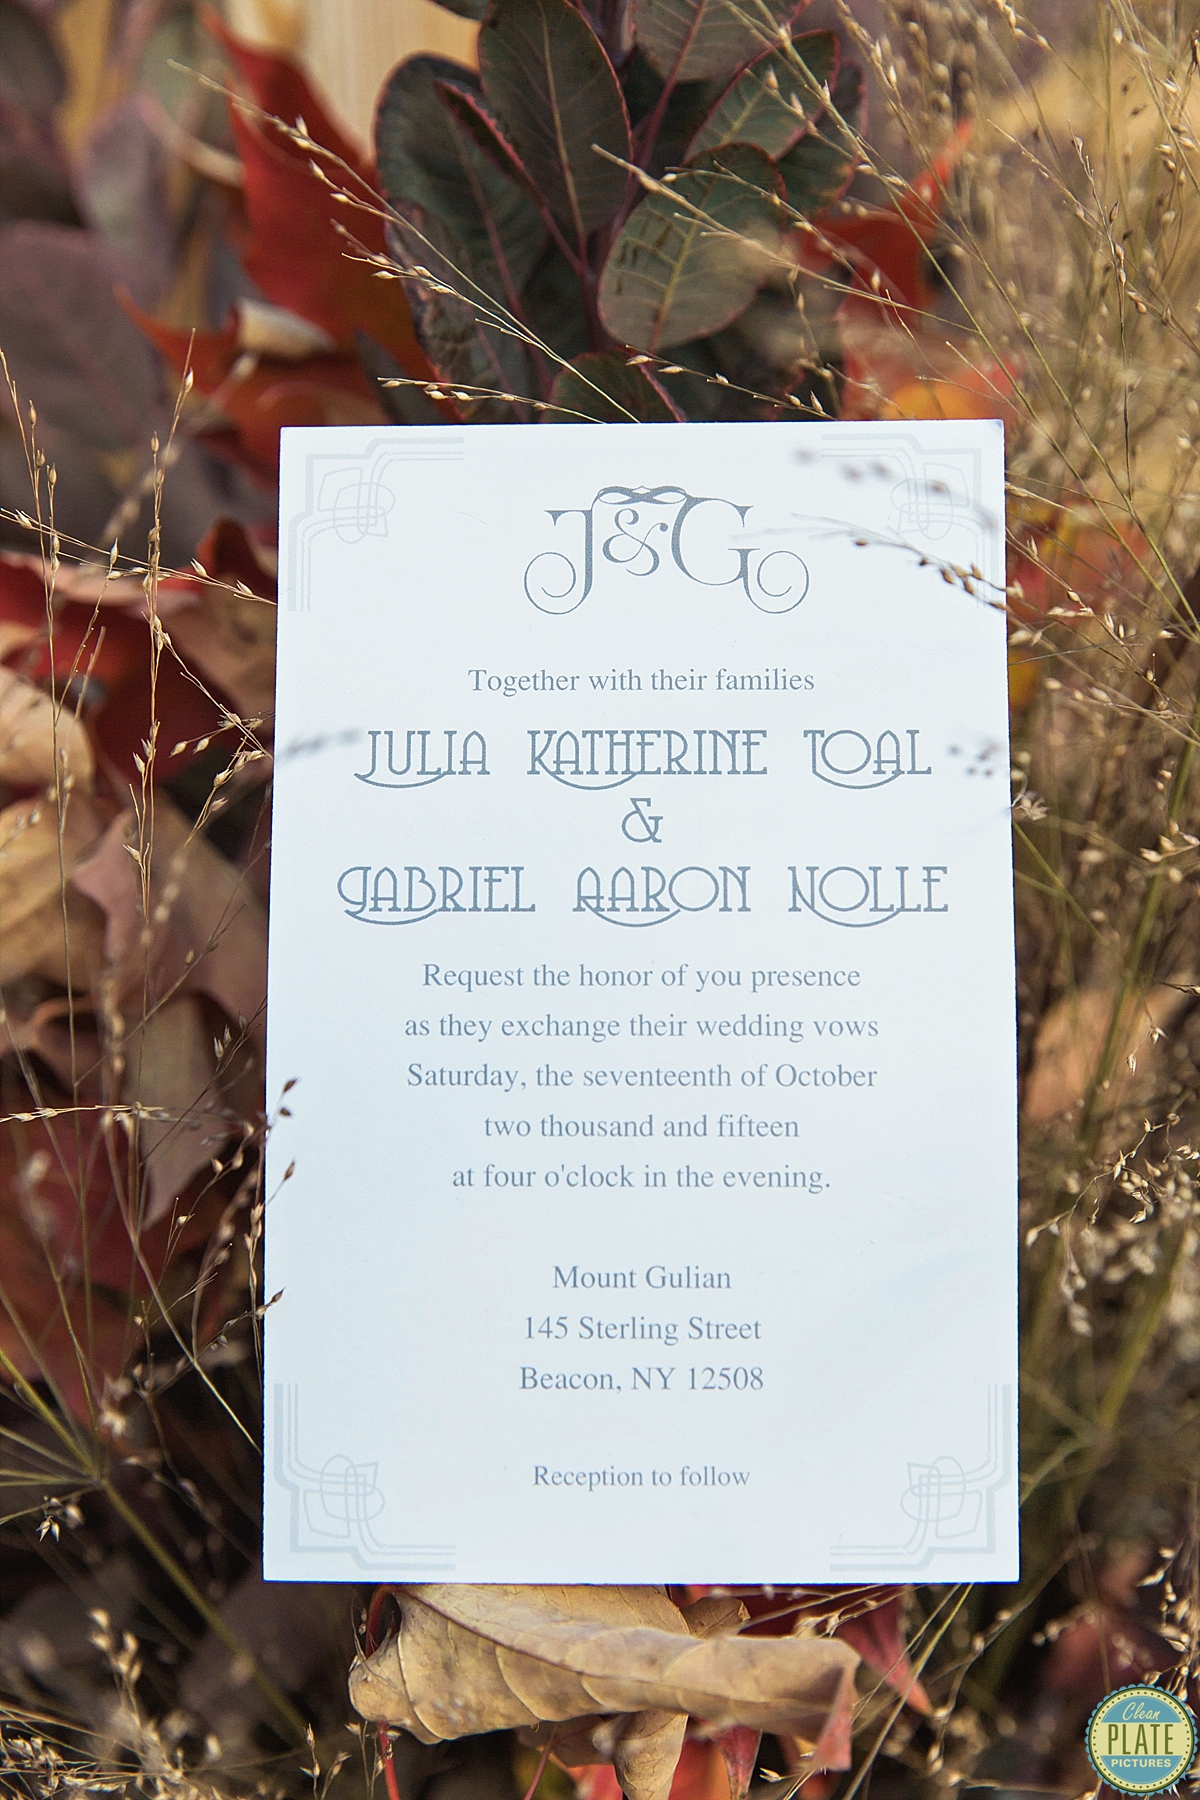 J&G
Together with their families
JULIA KATHERINE TOAL
&
GABRIEL AARON NOLLE
Request the honor of you presence
as they exchange their wedding vows
Saturday, the seventeenth of October
two thousand and fifteen
at four o'clock in the evening.
Mount Gulian
145 Sterling Street
Beacon, NY 12508
Reception to follow
Clean
PLATE
PICTURES